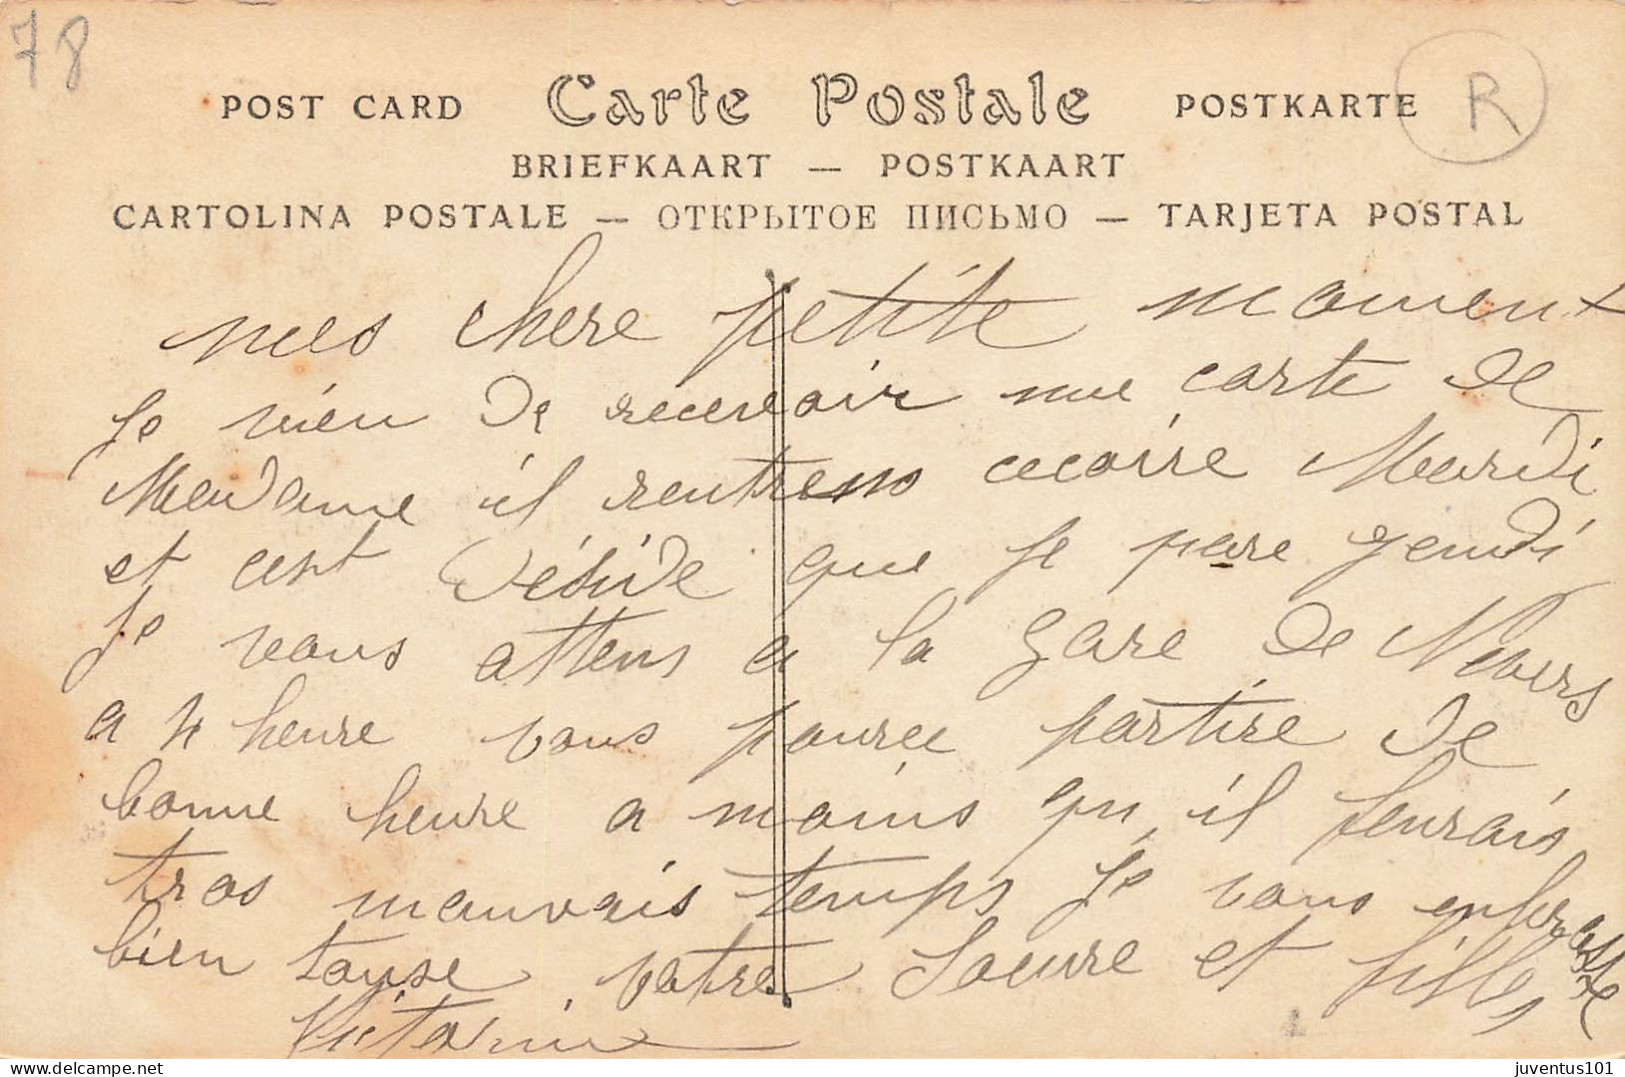 78
POST CARD Carte Postale POSTKARTE R
BRIEFKAART — POSTKAART
CARTOLINA POSTALE — ОТКРЫТОЕ ПИСЬМО — TARJETA POSTAL
mes chere petite moment
je vien de recevoir une carte de
Madame il rentrens Mardi
et cest déside que je pare jeudi
je vous attens a la gare de Nevers
a 4 heure vous pouree partire de
bonne heure a moins qu'il ferrais
tros mauvais temps je vous enbrasse
bien touse votre Soeure et fille
Victorine
juventus101